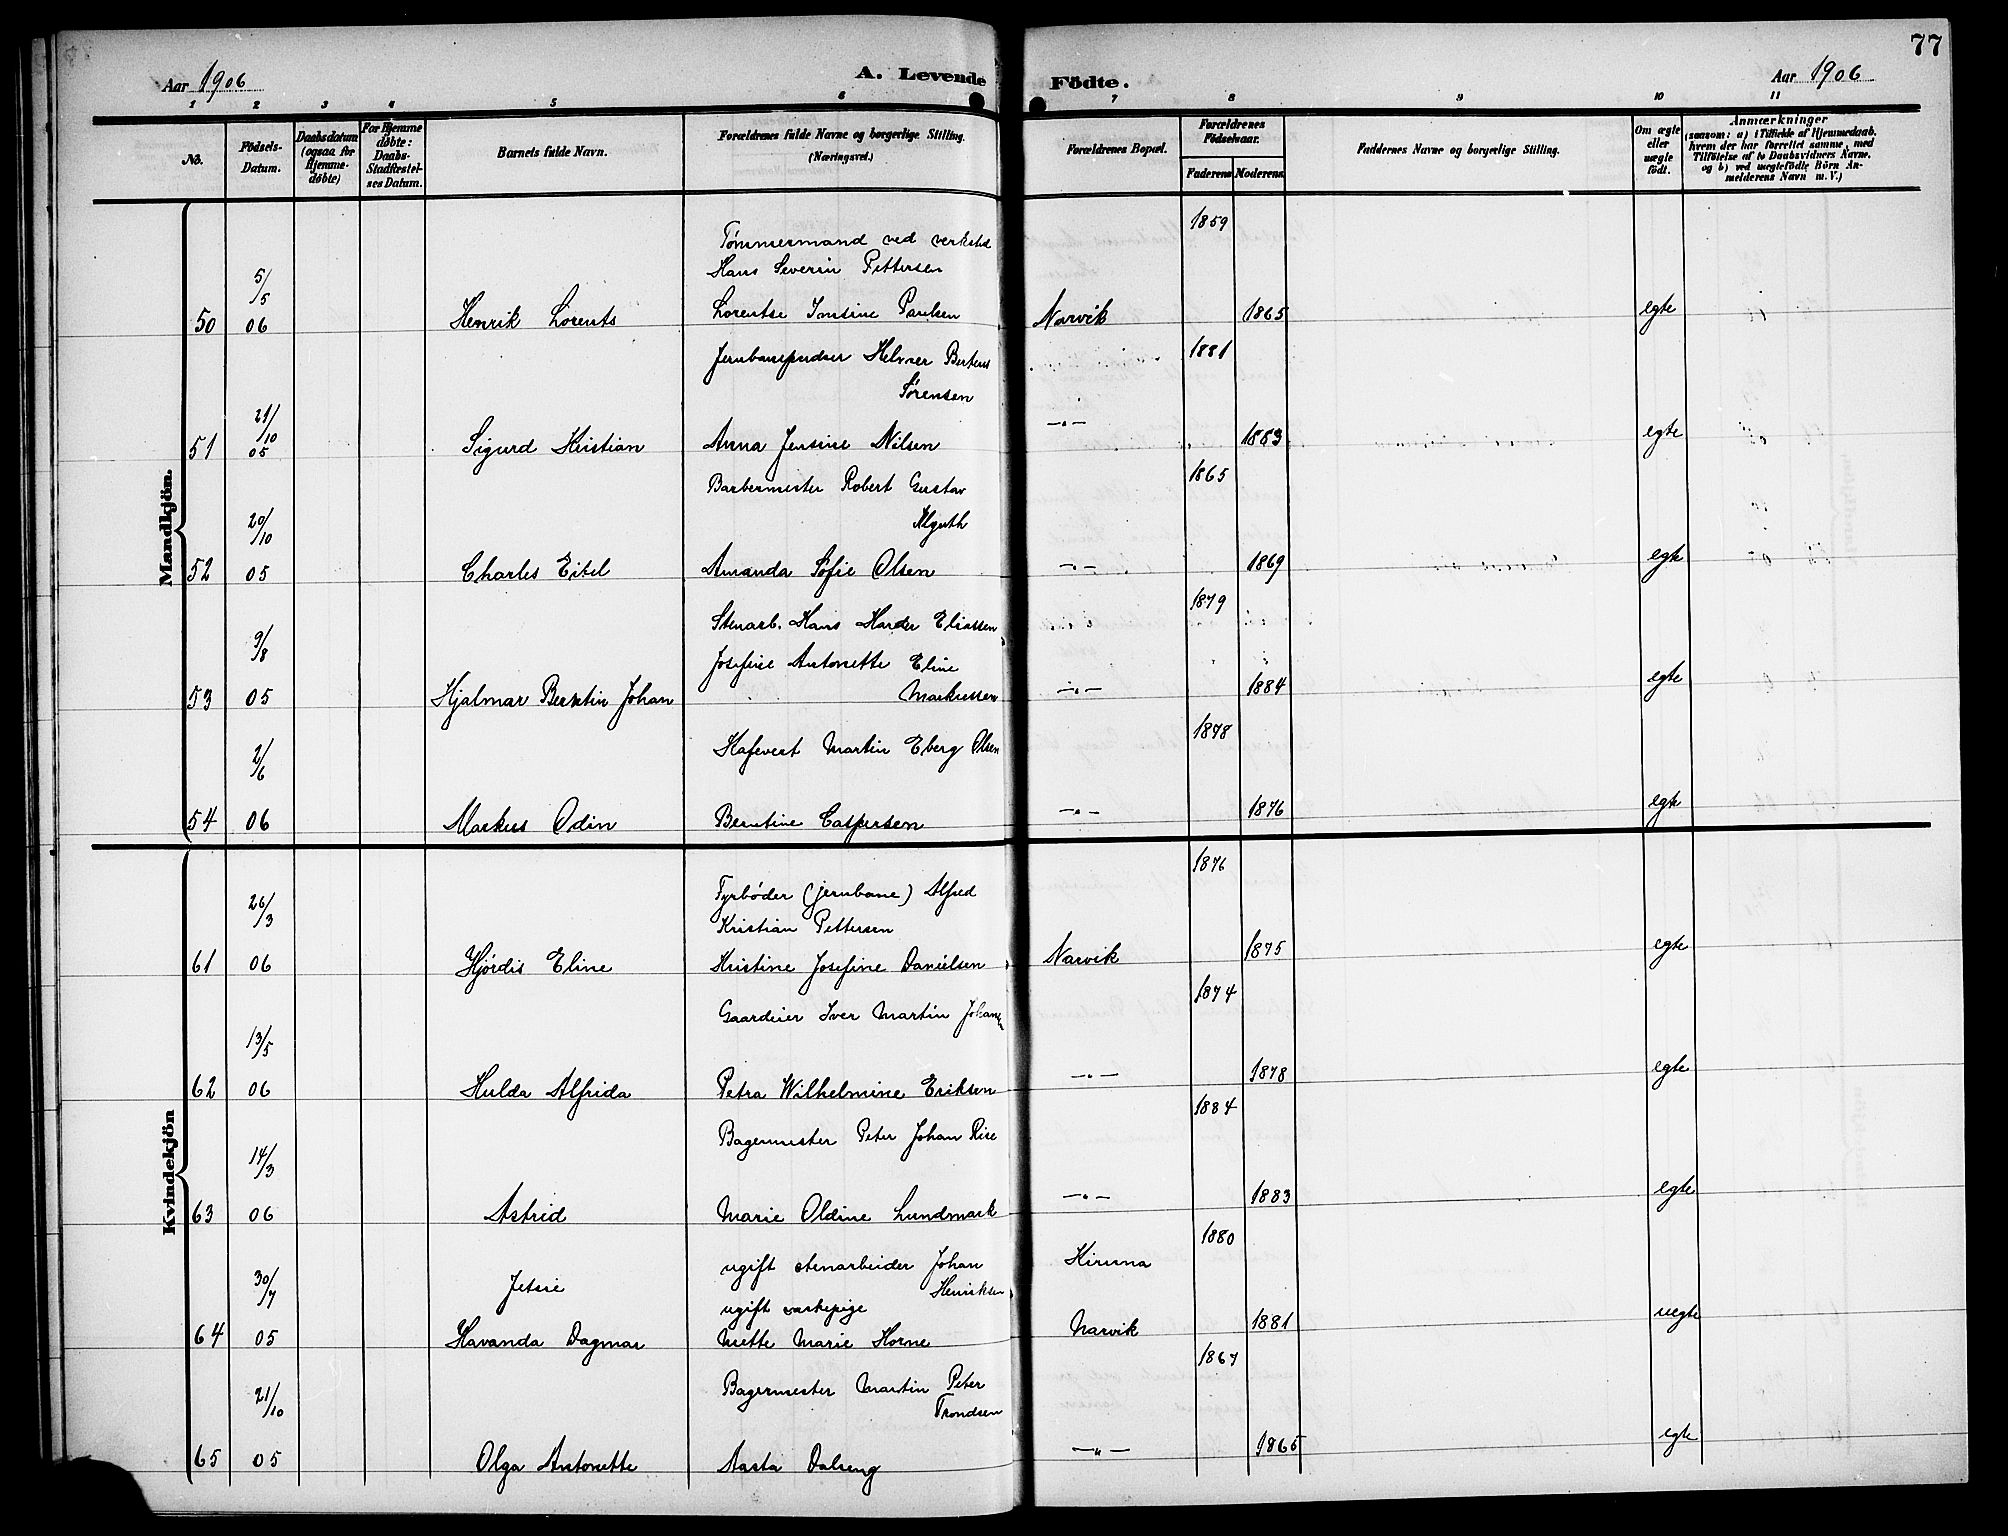 77
Aar 1906
A. Levende Födte.
Aar 1906
1 2 3 4 5 6 7 8 9 10 11
No.
Födsels-Datum.
Daabsdatum (ogsaa for Hjemme-døbte)
For Hjemme døbte: Daabs-Stadfæstel-ses Datum.
Barnets fulde Navn.
Forældrenes fulde Navne og borgerlige Stilling. (Næringsvei.)
Forældrenes Bopæl.
Forældrenes Födselsaar.
Faderens Moderens
Faddernes Navne og borgerlige Stilling.
Om ægte eller uægte født.
Anmærkninger
(saasom: a) i Tilfælde af Hjemmedaab,
hvem der har forrettet samme, med
Tilföielse af to Daabsvidners Navne,
og b) ved uægtefödte Börn An-
melderens Navn m. V.)
Mandkjön.
Tømmermand ved verksted 1859
5/5 Hans Severin Pettersen
50 06 Henrik Lorents Lorentse Jonsine Paulsen Narvik 1865 egte
Jernbanepudser Helmer Bertens 1881
Sørensen
21/10 —„—
51 05 Sigurd Kristian Anna Jensine Nilsen 1883 egte
Barbermester Robert Gustav 1865
20/10
52 05 Charles Eitel Amanda Sofie Olsen —„— 1869 egte
1879
9/8 Stenarb. Hans Harder Eliassen
Josefine Antonette Eline
53 05 Hjalmar Berntin Johan Markussen —„— 1884 egte
1878
2/6 Martin Eberg Olsen
54 06 Markus Odin Berntine Caspersen —„— 1876 egte
Kvindekjön
1876
26/3 Fyrbøder (jernbane) Alfred
Kristian Pettersen
61 06 Hjørdis Eline Kristine Josefine Danielsen Narvik 1875 egte
1874
Gaardeier Iver Martin Johansen
13/5
62 06 Hulda Alfrida Petra Wilhelmine Eriksen —„— 1878 egte
1884
Bagermester Peter Johan Rise
14/3
63 06 Astrid Marie Oldine Lundmark —„— 1883 egte
1880
ugift stenarbeider Johan Kiruna
30/7 Jetsie Henriksen
ugift vaskepige
64 05 Havanda Dagmar Mette Marie Horne Narvik 1881 uegte
1867
Bagermester Martin Peter
21/10 Trondsen
65 05 Olga Antonette Aasta Dalseng —„— 1865 egte